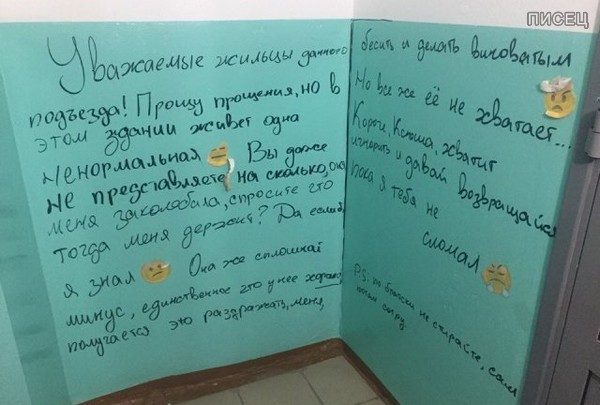 ПИСЕЦ
Уважаемые жильцы данного
подъезда! Прошу прощения, но в
этом здании живет одна
ненормальная Вы даже
не представляете, на сколько, она
меня заколобила, спросите что
тогда меня держит? Да если б
я знал Она же сплошной
минус, единственное что у нее хорошо
получается это раздражать, меня,
бесить и делать виноватым
Но все же её не хватает...
Короч, Ксюша, хватит
игнорить и давай возвращайся
пока я тебя не
сломал
P.S: по братски не стирайте, сам
потом сотру.